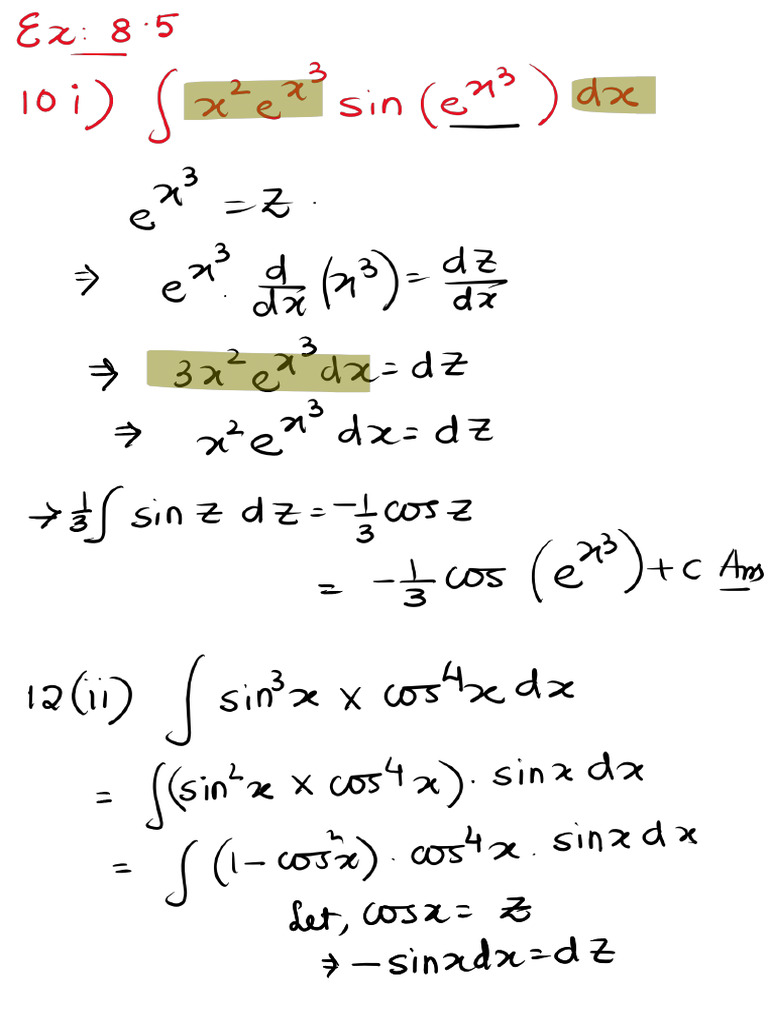 Ex: 8.5
10 i) ∫ x² e^{x³} sin (e^{x³}) dx
e^{x³} = z.
⇒ e^{x³} . d/dx (x³) = dz/dx
⇒ 3x² e^{x³} dx = dz
⇒ x² e^{x³} dx = dz
→ 1/3 ∫ sin z dz = -1/3 cos z
= -1/3 cos (e^{x³}) + c Ans
12 (ii) ∫ sin³x × cos⁴x dx
= ∫ (sin²x × cos⁴x) . sinx dx
= ∫ (1 - cos²x) . cos⁴x . sinx dx
Let, cosx = z
⇒ - sinx dx = dz